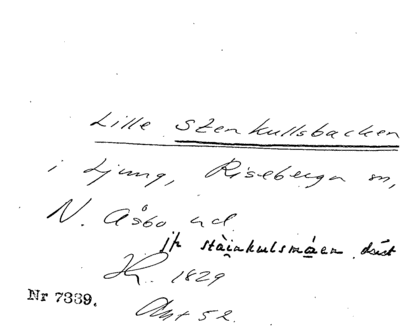 Lille Stenkullsbacken
i Ljung, Riseberga sn,
N. Åsbo hd
jfr stäinkulsmáen
1829
Nr 7339.
Akt 52.